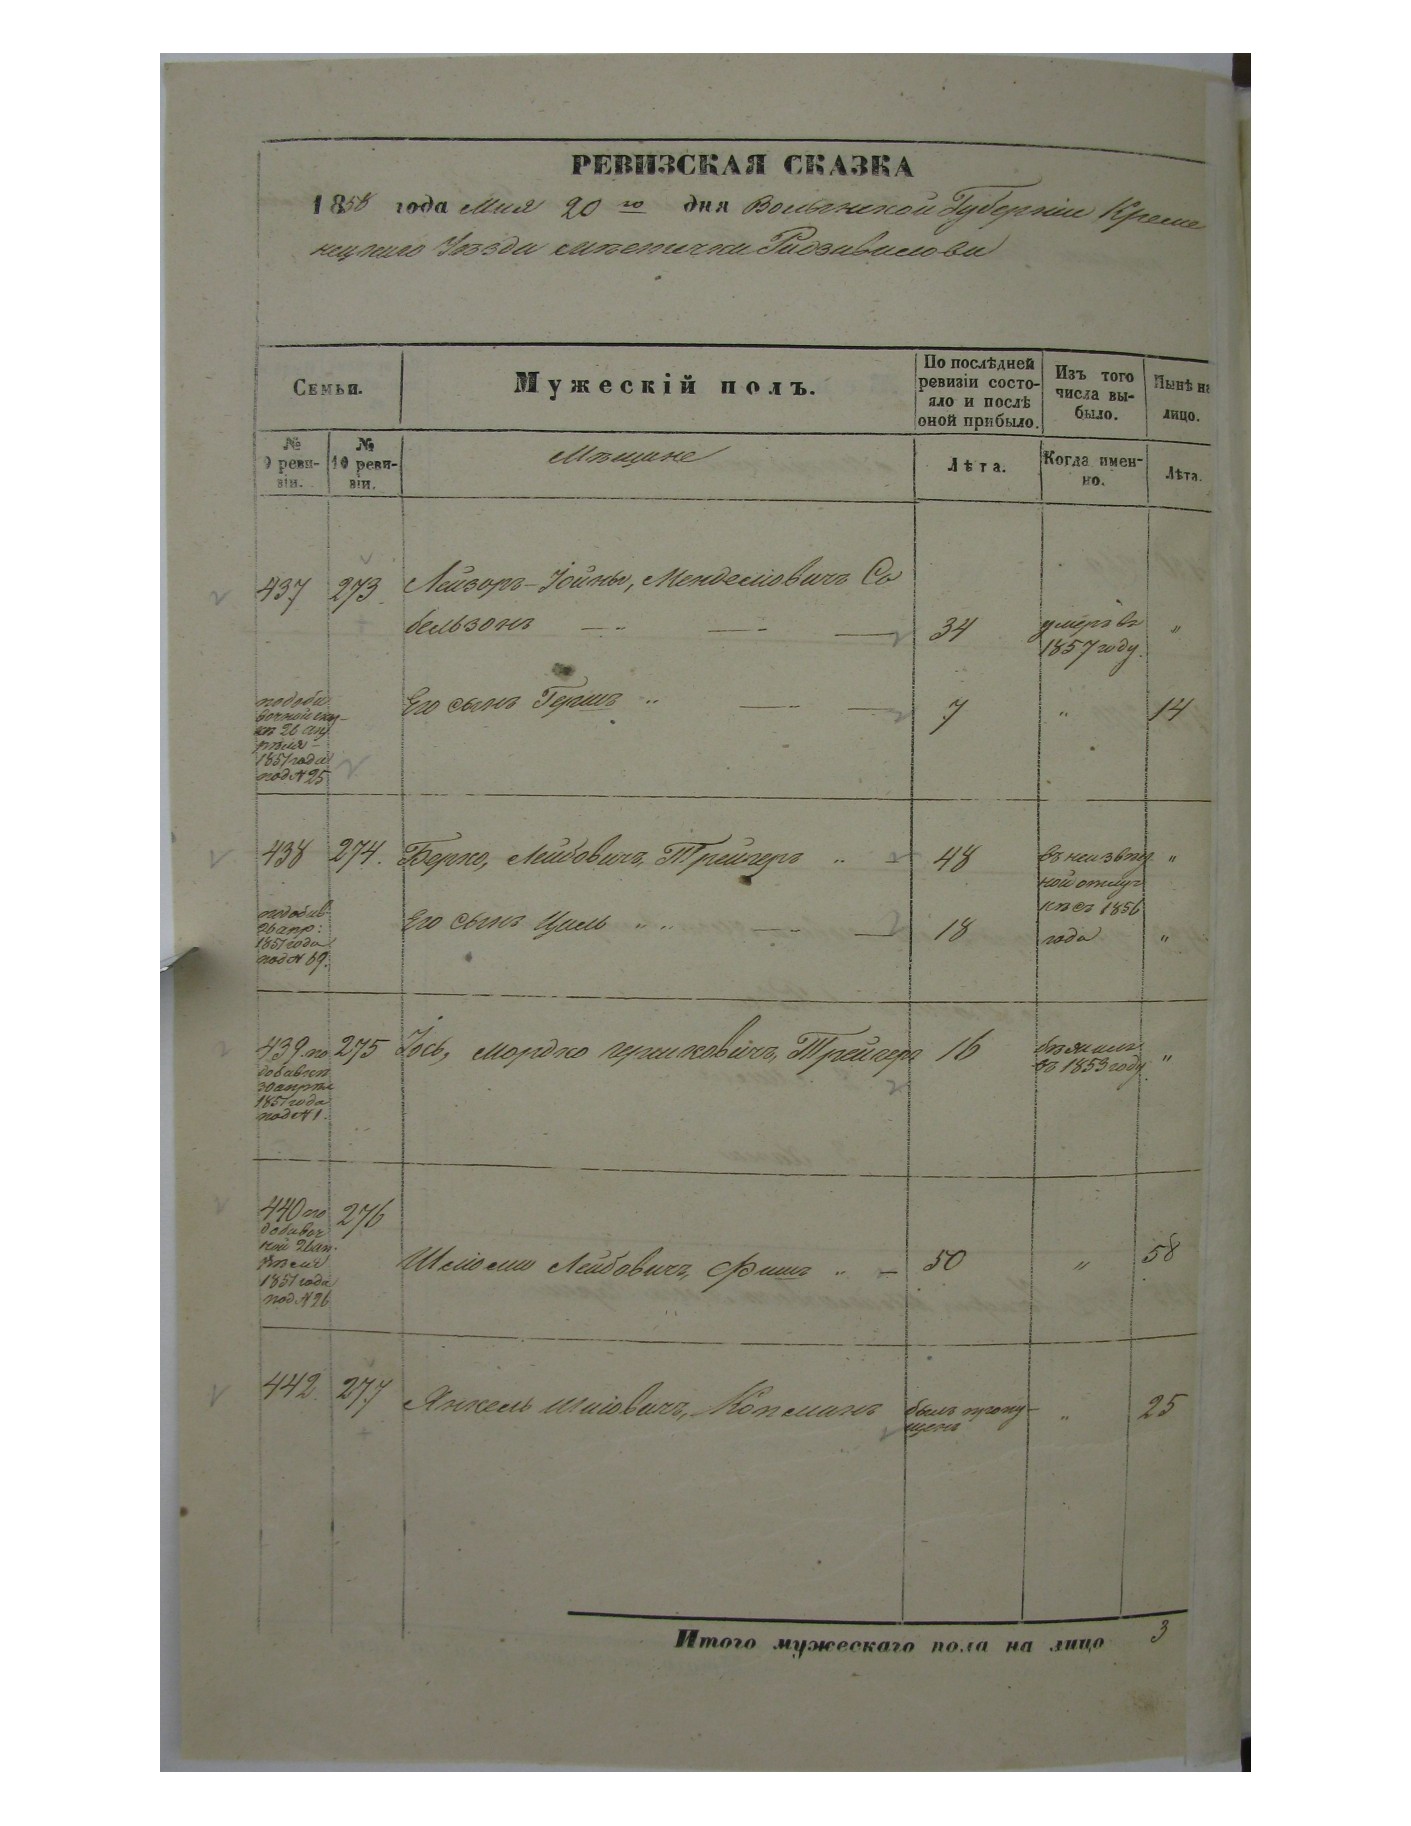 РЕВИЗСКАЯ СКАЗКА
1858 года Мая 20 го дня Волынской Губерніи Креме
нецкаго Уѣзда мѣстечка Радзивилова
Семьи.
Мужескій полъ.
По послѣдней ревизіи состояло и послѣ оной прибыло.
Изъ того числа выбыло.
Нынѣ на лицо.
№ 9 ревизіи.
№ 10 ревизіи.
Мѣщане
Лѣта.
Когда именно.
Лѣта.
437 273 Лейзоръ-Іойны, Менделіовичъ Со
бельзонъ 34 умеръ въ 1857 году. "
по доба
вочной ска-
26 ап
рѣля
1851 года
под N 25
Его сынъ Гершъ " 7 " 14
438 274. Берко, Лейбовичъ, Трейгеръ " 48 въ неизвѣст "
ной отлуч
кѣ съ 1856
подобав
26 апр:
1851 года
под N 69.
Его сынъ Циль " " 18 года "
439 по 275 Іось, Мордко гершковичъ, Трейгеръ 16 бѣжалъ
въ 1853 году. "
добавкѣ
30 апрѣл
1851 года
под N 1.
440 по 276
добавоч
ной 26 ап
рѣля
1851 года
под N 26
Шліома Лейбовичъ, Фишъ " 50 " 58
442 277 Янкель Шліовичъ, Копманъ былъ пропу-
щенъ " 25
Итого мужескаго пола на лицо 3